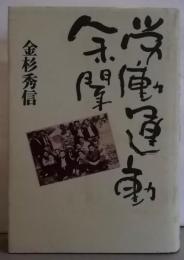 労働運動
余聞
金杉秀信